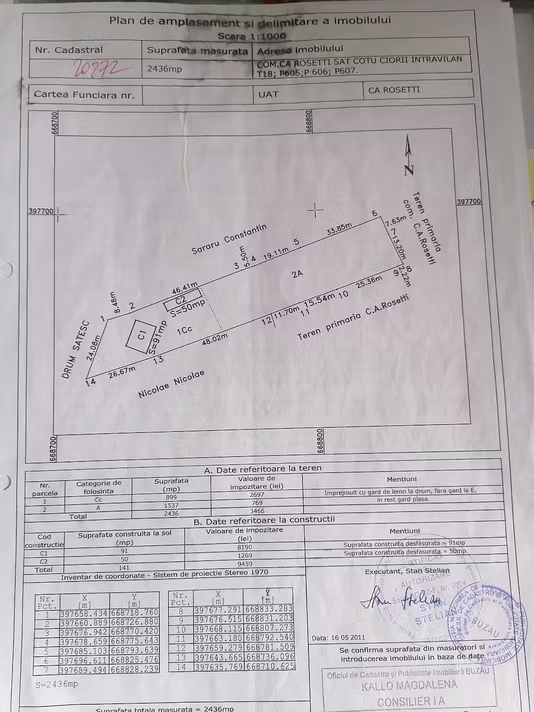 Plan de amplasament si delimitare a imobilului
Scara 1:1000
Nr. Cadastral
Suprafata masurata
Adresa Imobilului
20272
2436mp
COM.CA ROSETTI SAT COTU CIORII INTRAVILAN
T18; P605;P 606; P607.
Cartea Funciara nr.
UAT
CA ROSETTI
668700
668800
397700
397700
N
Sararu Constantin
Teren primaria
com. C.A.Rosetti
DRUM SATESC
Nicolae Nicolae
Teren primaria C.A.Rosetti
1
8.48m
2
46.41m
3
5.50m
4
19.11m
5
33.85m
6
7.63m
7
13.20m
8
2.22m
9
25.36m
10
15.54m
11
11.70m
12
48.02m
13
26.67m
14
24.08m
C1
S=91mp
C2
S=50mp
1Cc
2A
668700
668800
A. Date referitoare la teren
Nr. parcela
Categorie de folosinta
Suprafata (mp)
Valoare de impozitare (lei)
Mentiuni
1 Cc 899 2697
2 A 1537 769
Total 2436 3466
Imprejmuit cu gard de lemn la drum, fara gard la E,
in rest gard plasa.
B. Date referitoare la constructii
Cod constructie
Suprafata construita la sol (mp)
Valoare de impozitare (lei)
Mentiuni
C1 91 8190 Suprafata construita desfasurata = 91mp
C2 50 1269 Suprafata construita desfasurata = 50mp.
Total 141 9459
Inventar de coordonate - Sistem de proiectie Stereo 1970
Nr. Pct. X [m] Y [m]
1 397658.434 668718.760
2 397660.889 668726.880
3 397676.942 668770.420
4 397678.659 668775.643
5 397685.103 668793.639
6 397696.611 668825.476
7 397689.494 668828.239
Nr. Pct. X [m] Y [m]
8 397677.291 668833.283
9 397676.515 668831.203
10 397668.115 668807.273
11 397663.180 668792.540
12 397659.279 668781.509
13 397643.665 668736.096
14 397635.769 668710.625
S=2436mp
Executant, Stan Stelian
AUTORIZARE
STELIAN
BUZAU
Data: 16 05 2011
Se confirma suprafata din masuratori si
introducerea imobilului in baza de date
Oficiul de Cadastru si Publicitate Imobiliara BUZAU
KALLO MAGDALENA
CONSILIER IA
Suprafata totala masurata = 2436mp